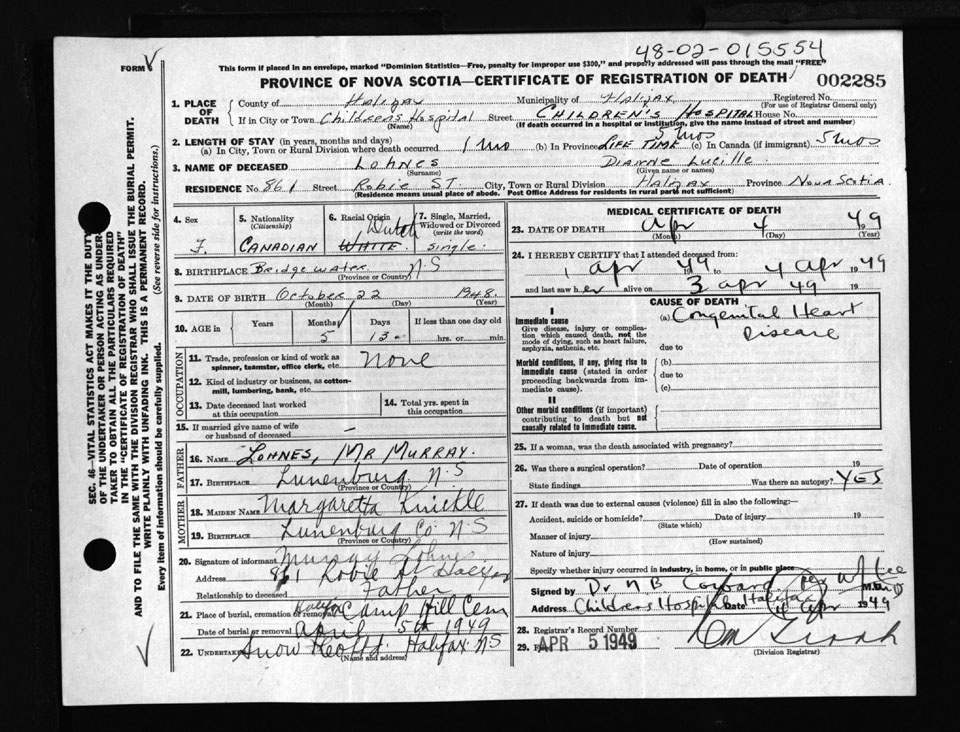 48-02-015554
FORM
This form if placed in an envelope, marked "Dominion Statistics—Free, penalty for improper use $300," and properly addressed will pass through the mail "FREE"
PROVINCE OF NOVA SCOTIA—CERTIFICATE OF REGISTRATION OF DEATH 002285
1. PLACE OF DEATH County of Halifax Municipality of Halifax Registered No.
(For use of Registrar General only)
If in City or Town Childrens Hospital Street CHILDREN'S HOSPITAL House No.
(Name) (If death occurred in a hospital or institution, give the name instead of street and number)
2. LENGTH OF STAY (in years, months and days) 5 mos
(a) In City, Town or Rural Division where death occurred 1 mo (b) In Province LIFE TIME (c) In Canada (if immigrant) 5 mos
3. NAME OF DECEASED Lohnes Dianne Lucille
(Surname) (Given name or names)
RESIDENCE No. 861 Street Robie ST City, Town or Rural Division Halifax Province Nova Scotia
(Residence means usual place of abode. Post Office Address for residents in rural parts not sufficient)
4. Sex 5. Nationality (Citizenship) 6. Racial Origin 7. Single, Married, Widowed or Divorced (write the word)
F. CANADIAN Dutch WHITE single.
8. BIRTHPLACE Bridgewater N S
(Province or Country)
9. DATE OF BIRTH October 22 1948.
(Month) (Day) (Year)
10. AGE in Years Months Days If less than one day old
5 13 hrs. or min.
OCCUPATION
11. Trade, profession or kind of work as spinner, teamster, office clerk, etc. None
12. Kind of industry or business, as cotton-mill, lumbering, bank, etc.
13. Date deceased last worked at this occupation 14. Total yrs. spent in this occupation
15. If married give name of wife or husband of deceased —
FATHER
16. Name LOHNES, MR MURRAY.
17. Birthplace Lunenburg N.S
(Province or Country)
MOTHER
18. MAIDEN NAME Margaretta Knickle
19. BIRTHPLACE Lunenburg Co N S
(Province or Country)
20. Signature of informant Murray Lohnes
Address 861 Robie St Halifax
Relationship to deceased Father
21. Place of burial, cremation or removal Halifax Camp Hill Cem
Date of burial or removal April 5th 1949
22. Undertaker Snow Halifax N S
(Name and address)
MEDICAL CERTIFICATE OF DEATH
23. DATE OF DEATH Apr 4 1949
(Month) (Day) (Year)
24. I HEREBY CERTIFY that I attended deceased from:
1 Apr 1949 to 4 Apr 1949
and last saw her alive on 3 apr 49 19
CAUSE OF DEATH
I
Immediate cause (a) Congenital Heart
Give disease, injury or complication which caused death, not the mode of dying, such as heart failure, asphyxia, asthenia, etc. Disease
due to
Morbid conditions, if any, giving rise to immediate cause (stated in order proceeding backwards from immediate cause). (b)
due to
(c)
II
Other morbid conditions (if important) contributing to death but not causally related to immediate cause.
25. If a woman, was the death associated with pregnancy?
26. Was there a surgical operation? Date of operation 19
State findings Was there an autopsy? YES
27. If death was due to external causes (violence) fill in also the following:—
Accident, suicide or homicide? Date of injury 19
(State which)
Manner of injury
(How sustained)
Nature of injury
Specify whether injury occurred in industry, in home, or in public place
Signed by Dr N B M.D.
Address Childrens Hospital Halifax Date 4 apr 1949
28. Registrar's Record Number
29. APR 5 1949
(Division Registrar)
SEC. 46—VITAL STATISTICS ACT MAKES IT THE DUTY
OF THE UNDERTAKER OR PERSON ACTING AS UNDER-
TAKER TO OBTAIN ALL THE PARTICULARS REQUIRED
IN THE "CERTIFICATE OF REGISTRATION OF DEATH"
AND TO FILE THE SAME WITH THE DIVISION REGISTRAR WHO SHALL ISSUE THE BURIAL PERMIT.
WRITE PLAINLY WITH UNFADING INK. THIS IS A PERMANENT RECORD.
Every item of information should be carefully supplied. (See reverse side for instructions.)